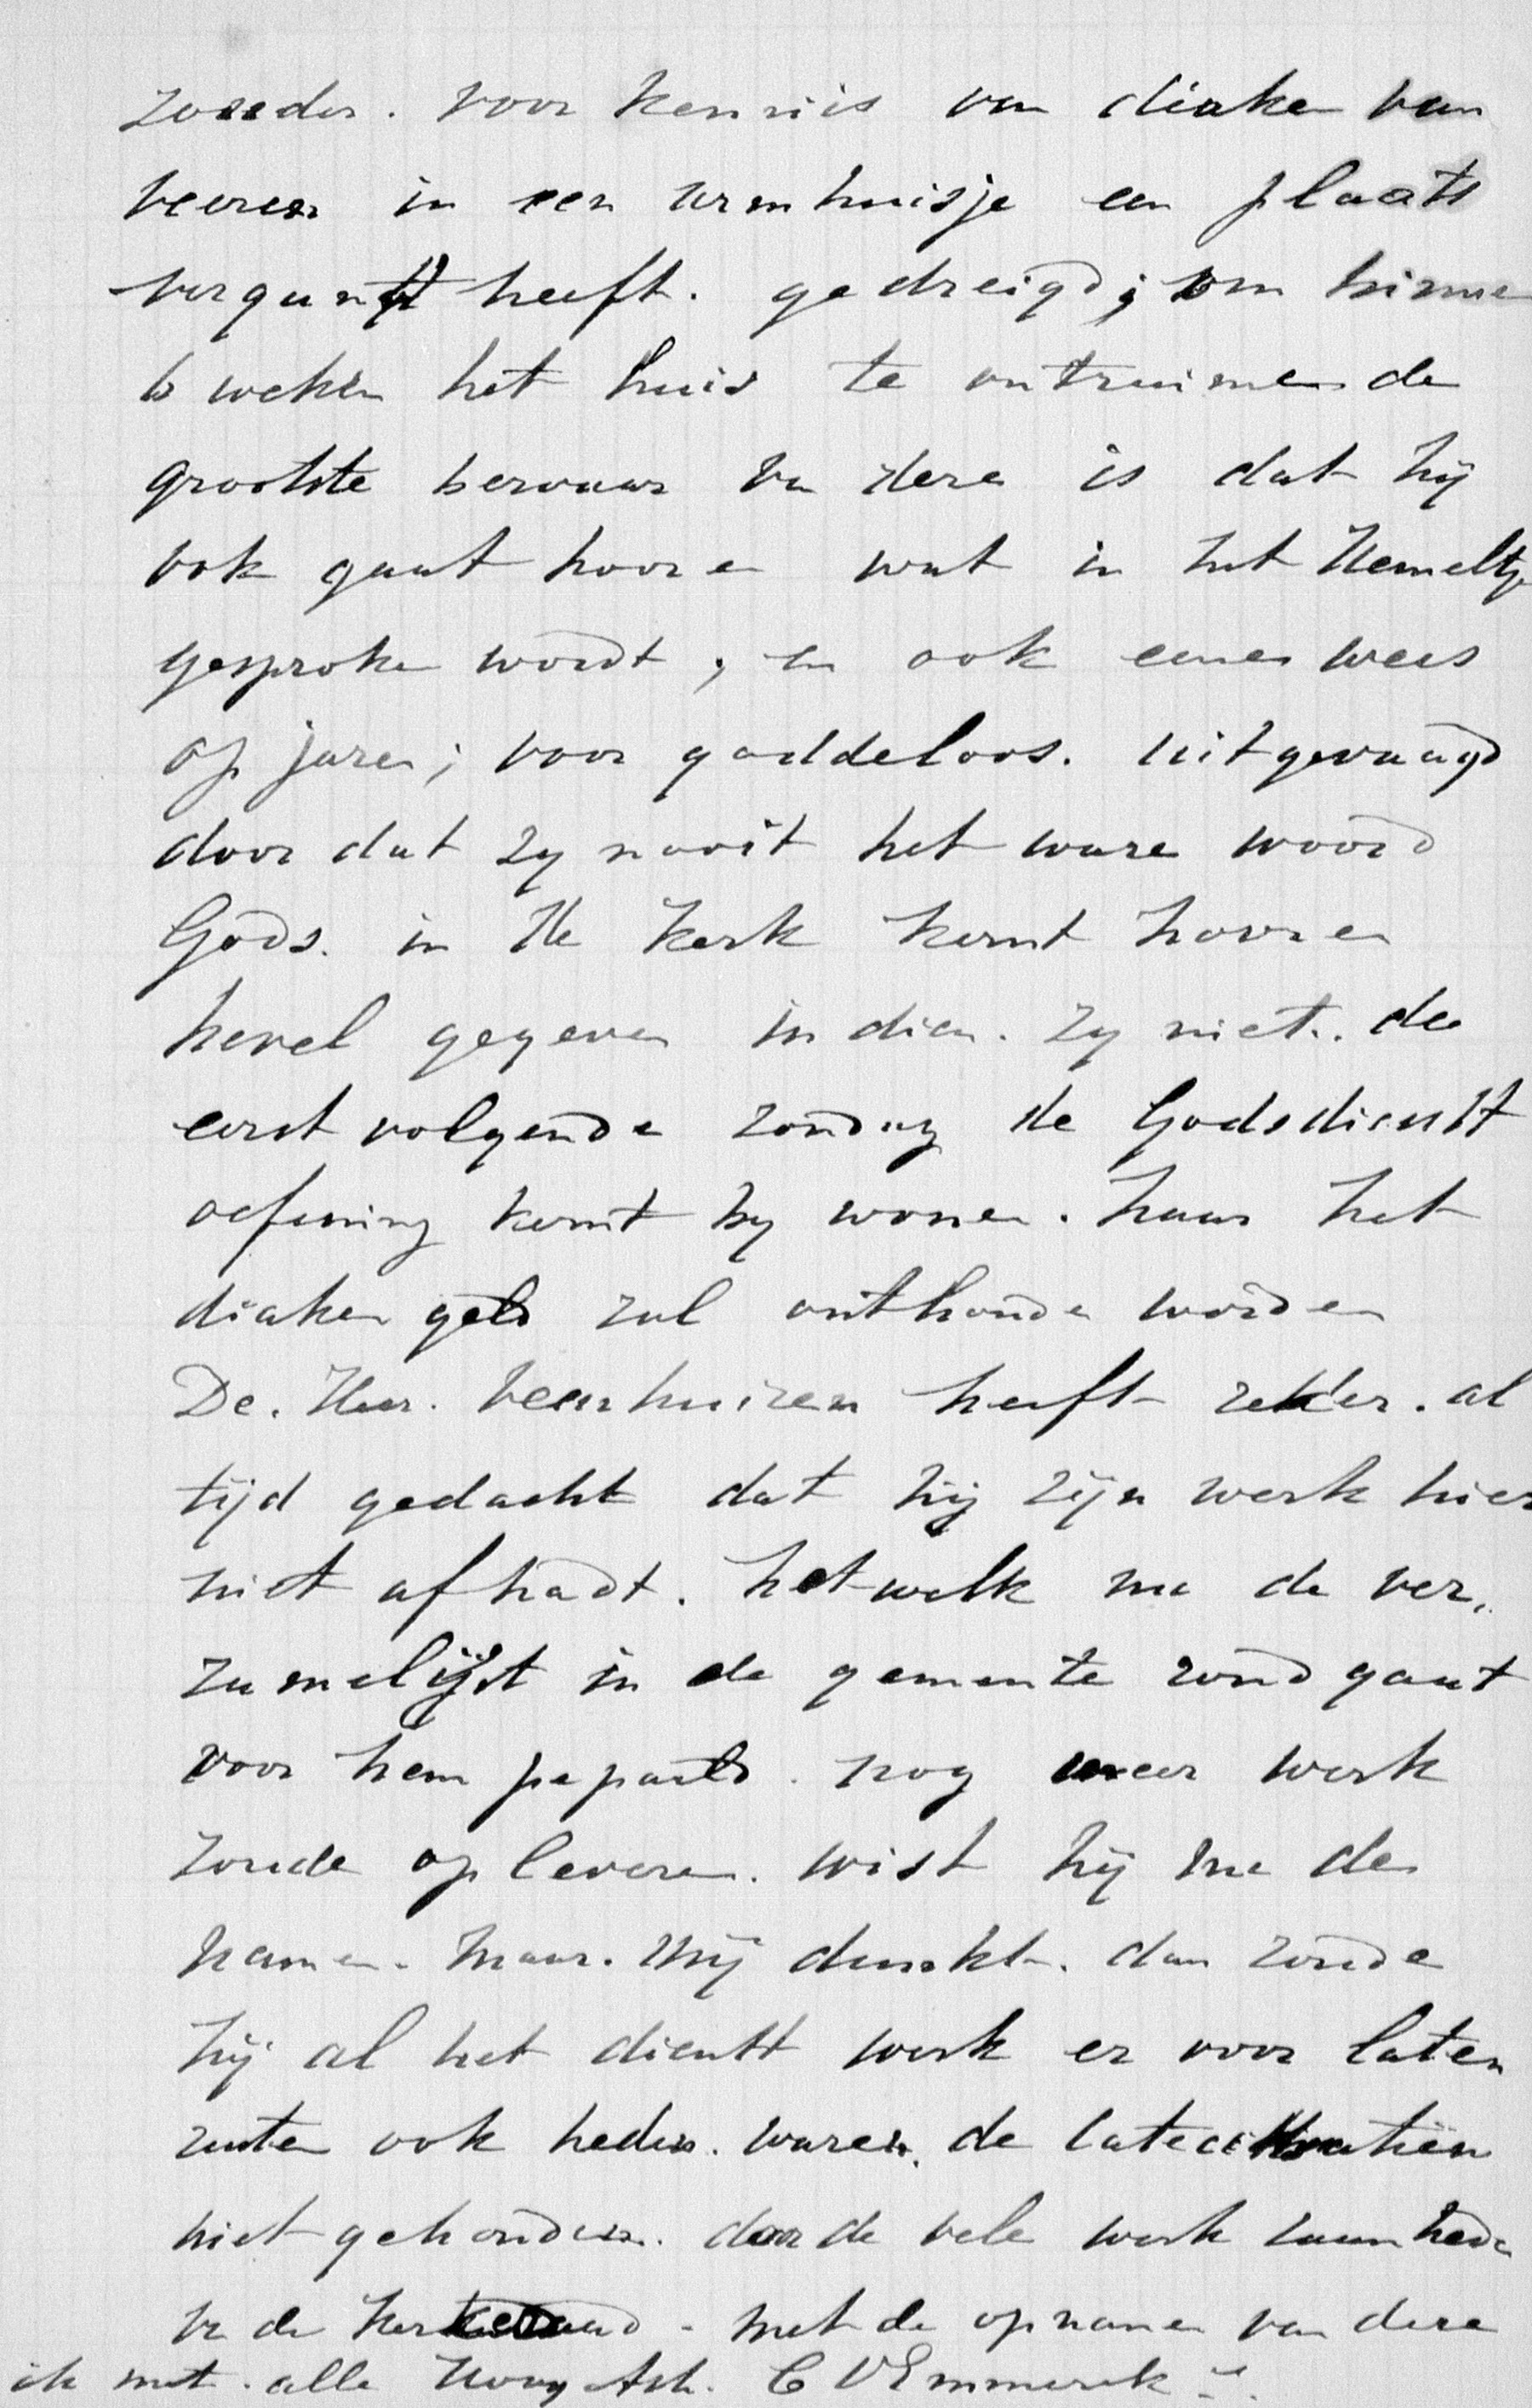 zonder. voor kennis van diake van
heeren in een armhuisje een plaats
vergunt heeft. gedreigd; om binne
6 weken het huis te ontruimen de
grootste bezwaar van deze is dat hij
ook gaat hooren wat in het Hemeltje
gesproke wordt, en ook eenen wees
op jaren; voor goddeloos. uitgevaagd
door dat zy nooit het ware woord
Gods. in de kerk komt hooren
bevel gegeven indien. zy niet. de
eerst volgende zondag de Godsdienst
oefening komt by wonen. haar het
diaken geld zal onthoude worden
De. Heer. Veenhuizen heeft zeker. al
tijd gedacht dat hij zijn werk hier
niet af hadt. hetwelk nu de ver.
zamelijst in de gemeente rond gaat
voor hem pepaald. nog meer werk
zoude opleveren. wist hij nu de
namen. maar. mij dunkt. dan zoude
hij al het dienst werk er voor laten
rusten ook heden. waren de catecisatiën
niet gehouden. door de vele werkzaamhede
in de kerkeraad. met de opname van deze
ik met. alle Hoog Ach. C VEmmerik